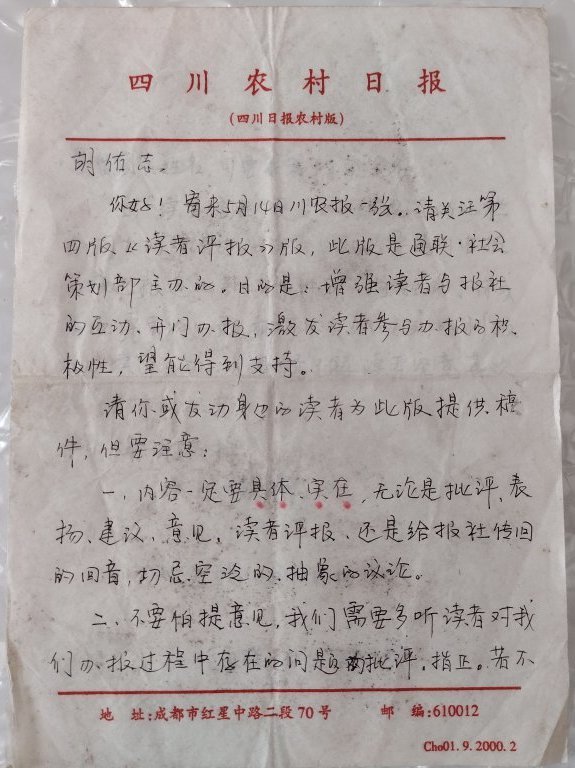 四川农村日报
(四川日报农村版)
胡佑志。
你好！寄来5月14日川农报一张。请关注第
四版、《读者评报》版，此版是通联·社会
策划部主办的。目的是：增强读者与报社
的互动、开门办报，激发读者参与办报的积
极性，望能得到支持。
请你或发动身边的读者为此版提供稿
件，但要注意：
一、内容一定要具体、实在，无论是批评、表
扬、建议、意见。读者评报、还是给报社传回
的回音，切忌空泛的、抽象的议论。
二、不要怕提意见，我们需要多听读者对我
们办报过程中存在的问题的批评、指正。若不
地 址:成都市红星中路二段70号 邮 编:610012
Cho01.9.2000.2